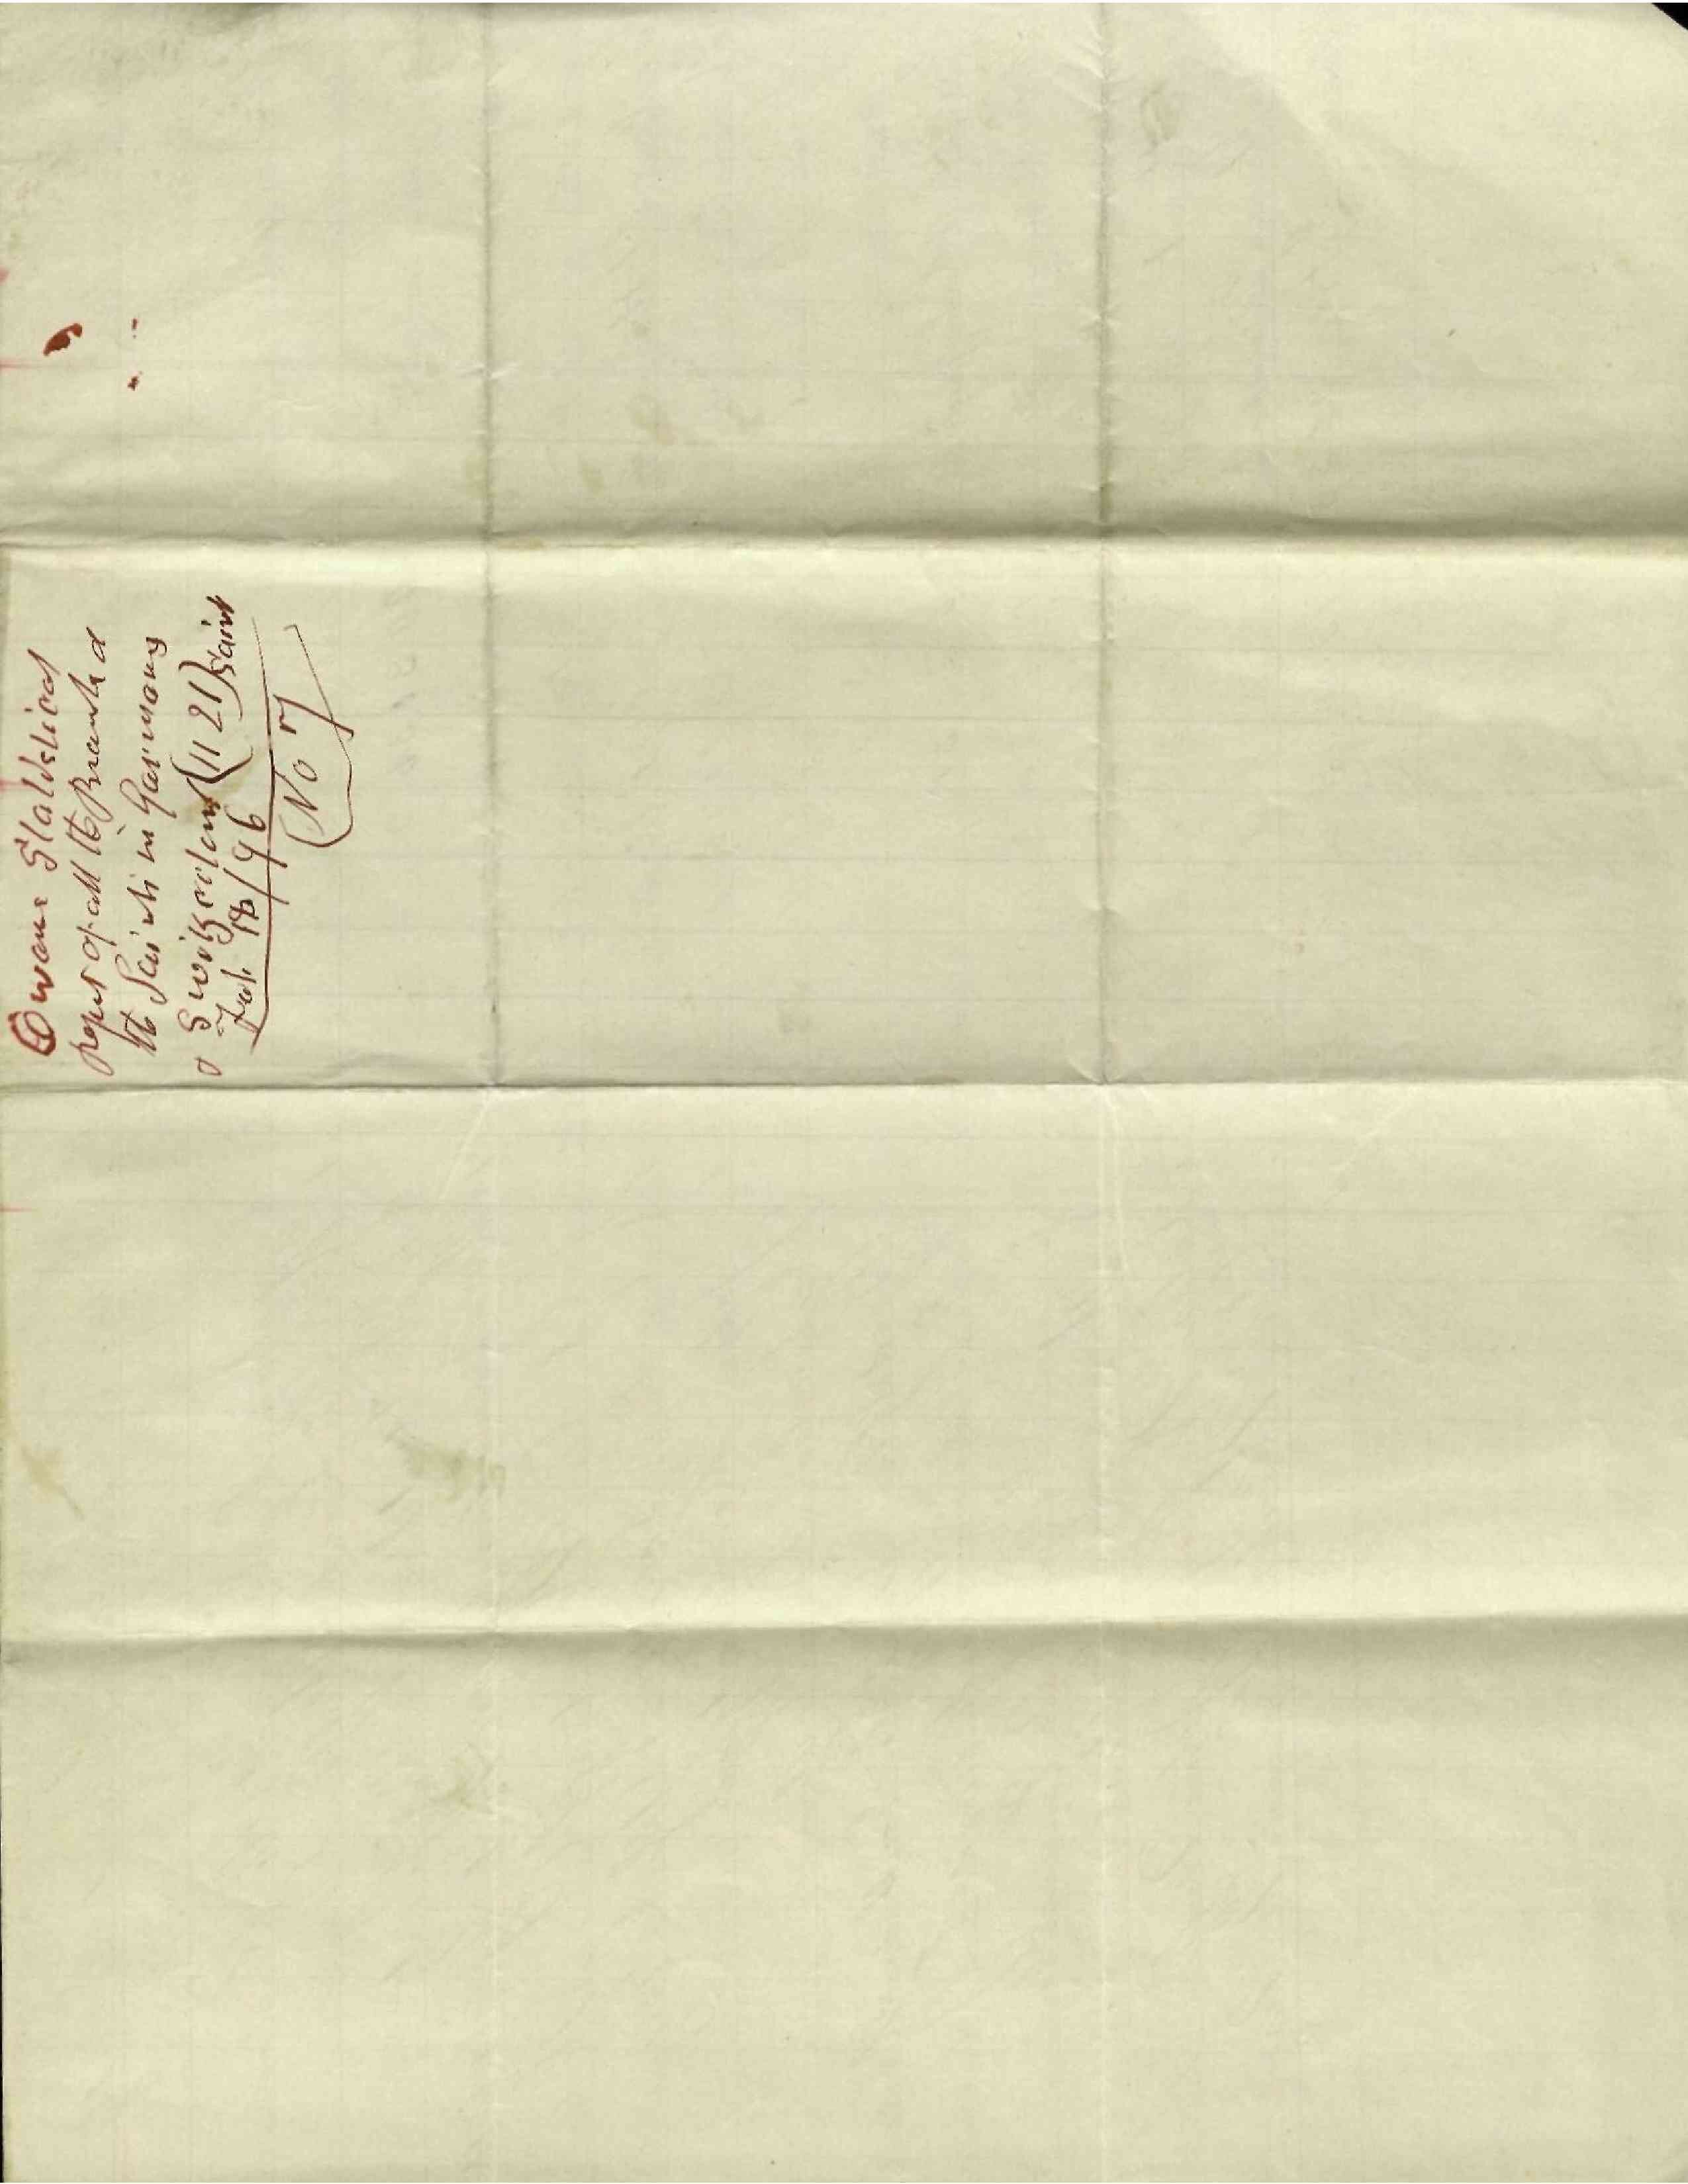 Owens Statistical
report of all the Branch of
the Saints in Germany
& Switzerland (1121) Saints
Feb 18/96
No 7